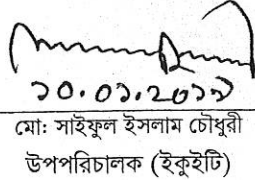 ১০.০১.২০১৯
মো: সাইফুল ইসলাম চৌধুরী
উপপরিচালক (ইকুইটি)